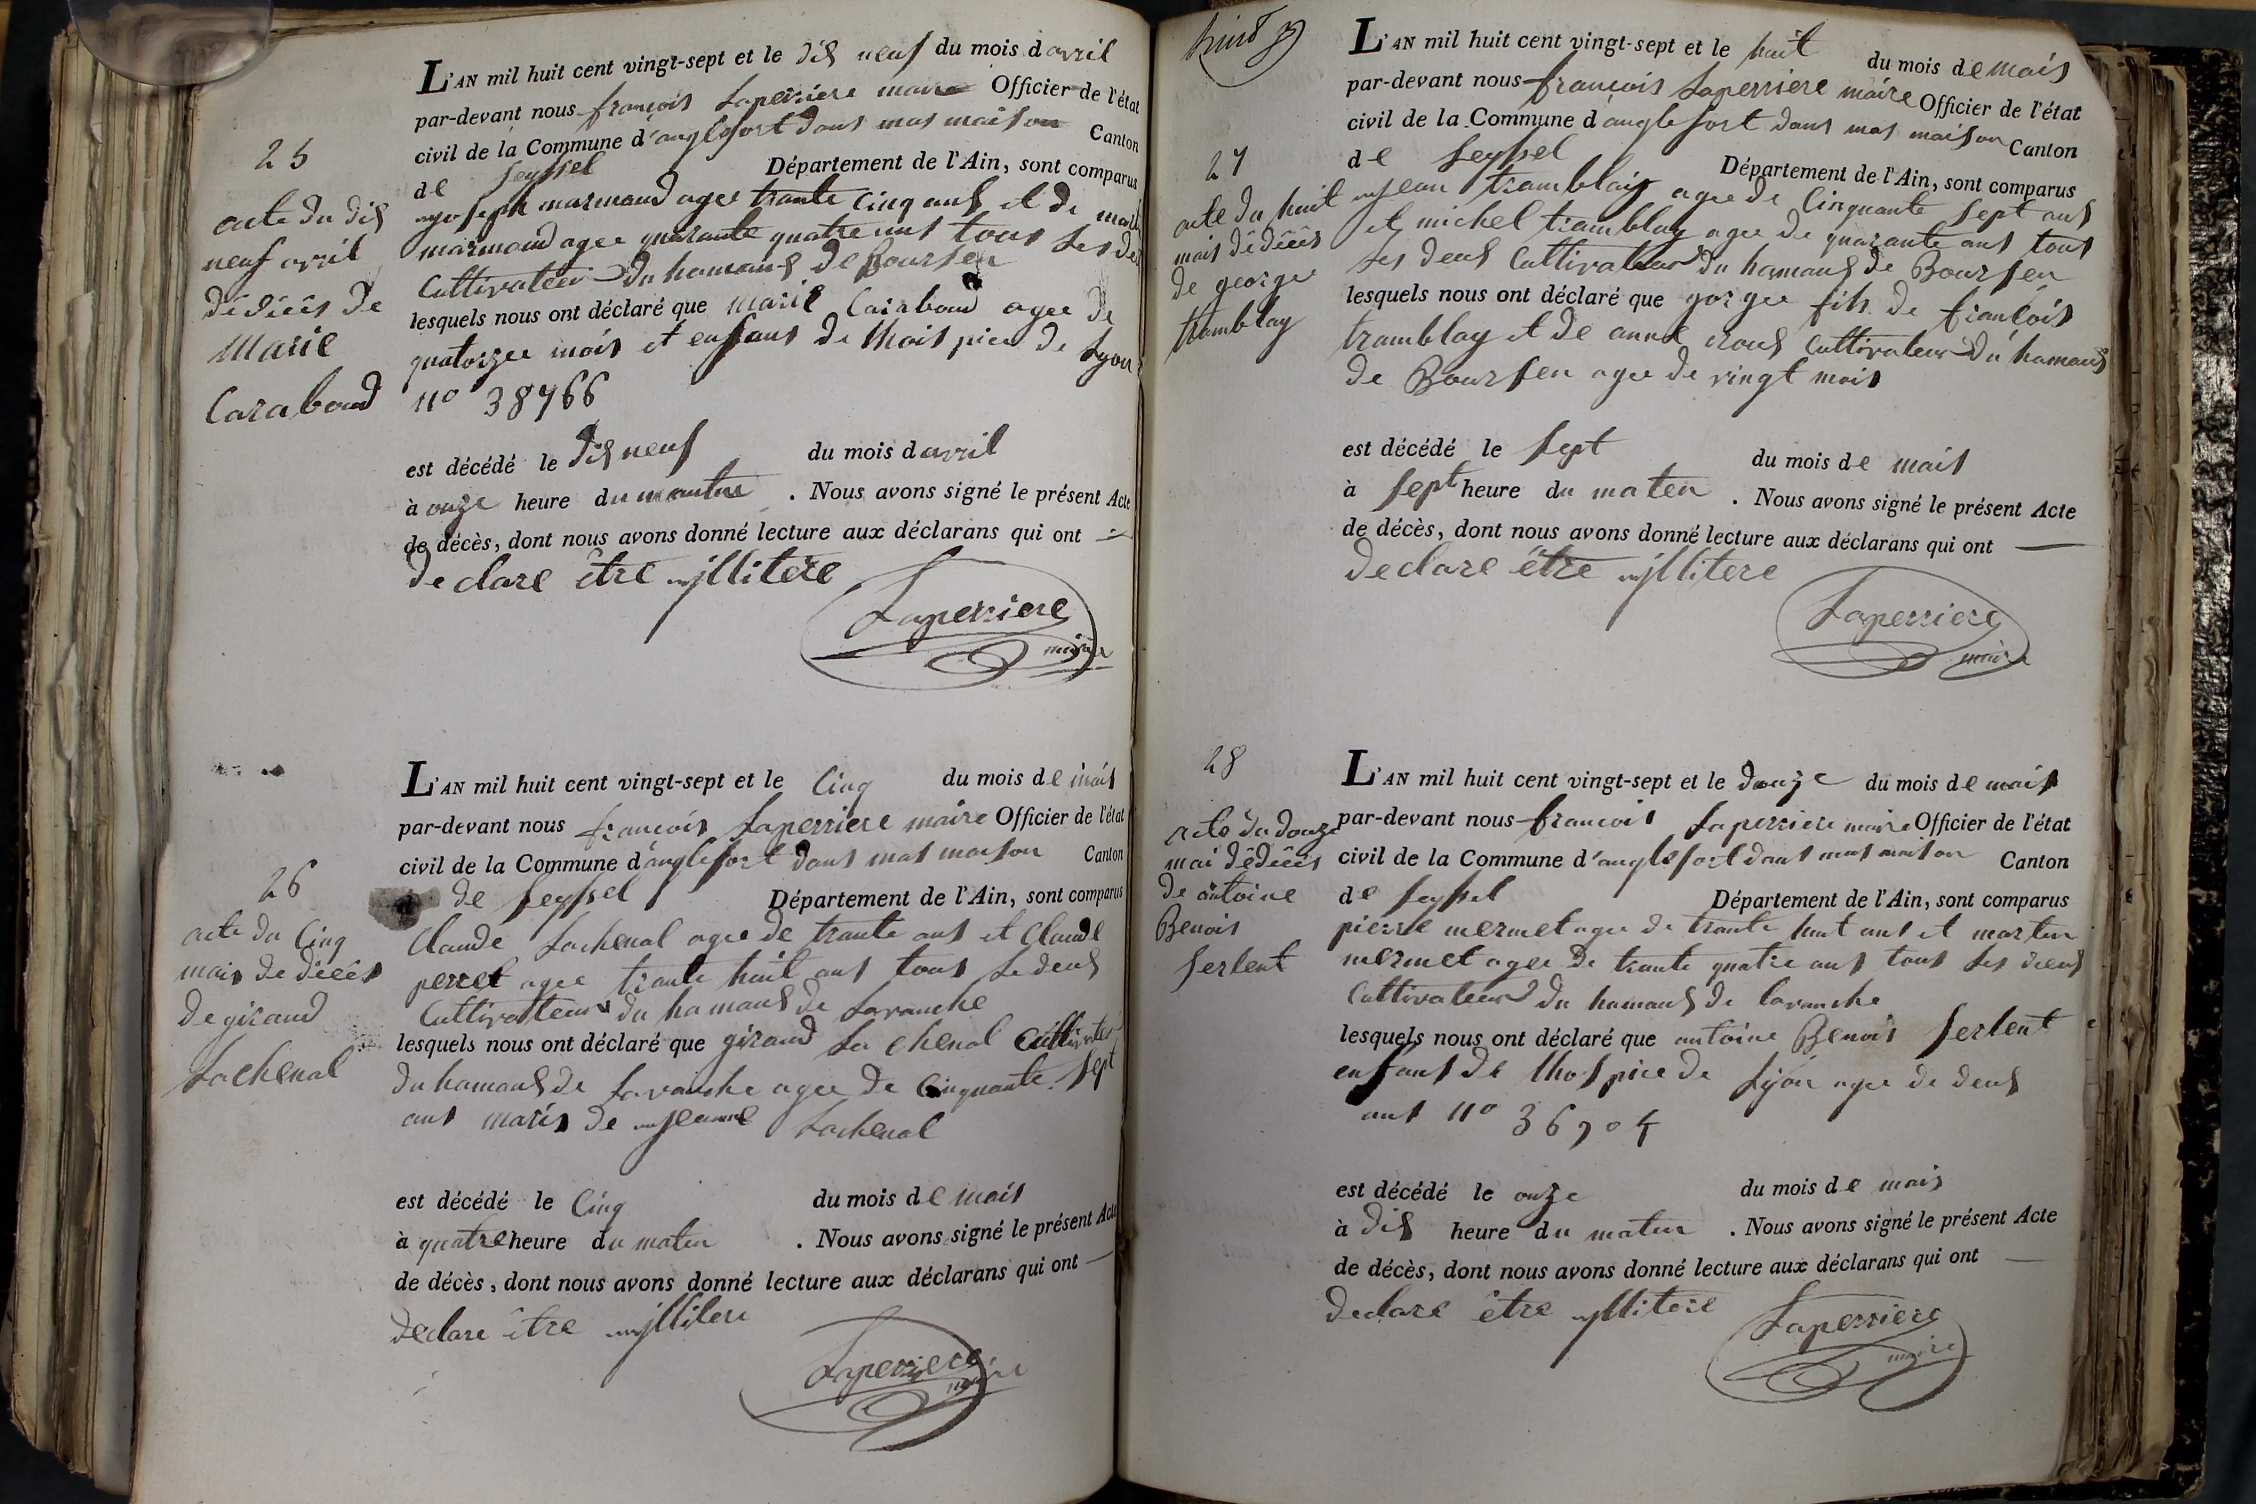 25
acte du dis
neuf avril
dédiéés de
Marie
Caraboud
L'AN mil huit cent vingt-sept et le dis neuf du mois d avril
par-devant nous françois Laperriere maire Officier de l'état
civil de la Commune d'anglefort dans mas maison Canton
de Seyssel Département de l'Ain, sont comparus
joseph marmoud agee trante cinq ans et de
marmoud agee quarante quatre ans tous Les
Cultivateur du hamaus de Boursen
lesquels nous ont déclaré que marie Caraboud agee de
quatorzee mois et enfant de lhoispice de Lyon
no 38766
est décédé le dis neuf du mois d avril
à onze heure du . Nous avons signé le présent Acte
de décès, dont nous avons donné lecture aux déclarans qui ont
declare être jllitere
Laperriere
maire
26
acte du Cinq
mais de diéés
de giraud
Lachenal
L'AN mil huit cent vingt-sept et le Cinq du mois de mais
par-devant nous françois Laperriere maire Officier de l'état
civil de la Commune d'anglefort dans mas maison Canton
de Seyssel Département de l'Ain, sont comparus
Claude Lachenal agee de trante ans et Claude
perret agee trante huit ans tous Le deus
Cultivateur du hamaus de Lavanche
lesquels nous ont déclaré que giraud La chenal
du hamaus de Lavanche agee de Cinquante Sept
ans maris de jeanne Lachenal
est décédé le Cinq du mois de mais
à quatre heure du maten . Nous avons signé le présent Acte
de décès, dont nous avons donné lecture aux déclarans qui ont
declare être jllitere
Laperriere
maire
27
acte du huit
mais dédiéés
de george
tramblay
L'AN mil huit cent vingt-sept et le huit du mois de mais
par-devant nous françois Laperriere maire Officier de l'état
civil de la Commune d'anglefort dans mas maison Canton
de Seyssel Département de l'Ain, sont comparus
jean tramblay agee de Cinquante Sept ans
et michel tramblay agee de quarante ans tous
Les deus Cultivateur du hamaus de Boursen
lesquels nous ont déclaré que gorgee fils de françois
tramblay et de anne Cultivateur du hamaus
de Boursen agee de vingt mois
est décédé le Sept du mois de mais
à Sept heure du maten . Nous avons signé le présent Acte
de décès, dont nous avons donné lecture aux déclarans qui ont
declare être jllitere
Laperriere
maire
28
acte du douze
mai dédiéés
de antoine
Benois
Serlent
L'AN mil huit cent vingt-sept et le douze du mois de mais
par-devant nous françois Laperriere maire Officier de l'état
civil de la Commune d'anglefort dans mas maison Canton
de Seyssel Département de l'Ain, sont comparus
pierre mermet agee de trante huit ans et marten
mermet agee de trante quatre ans tous Les deus
Cultivateur du hamaus de lavanche
lesquels nous ont déclaré que antoine Benois Serlent
enfant de lhospice de Lyon agee de deus
ans no
est décédé le onze du mois de mais
à dis heure du maten . Nous avons signé le présent Acte
de décès, dont nous avons donné lecture aux déclarans qui ont
declare être jllitere
Laperriere
maire